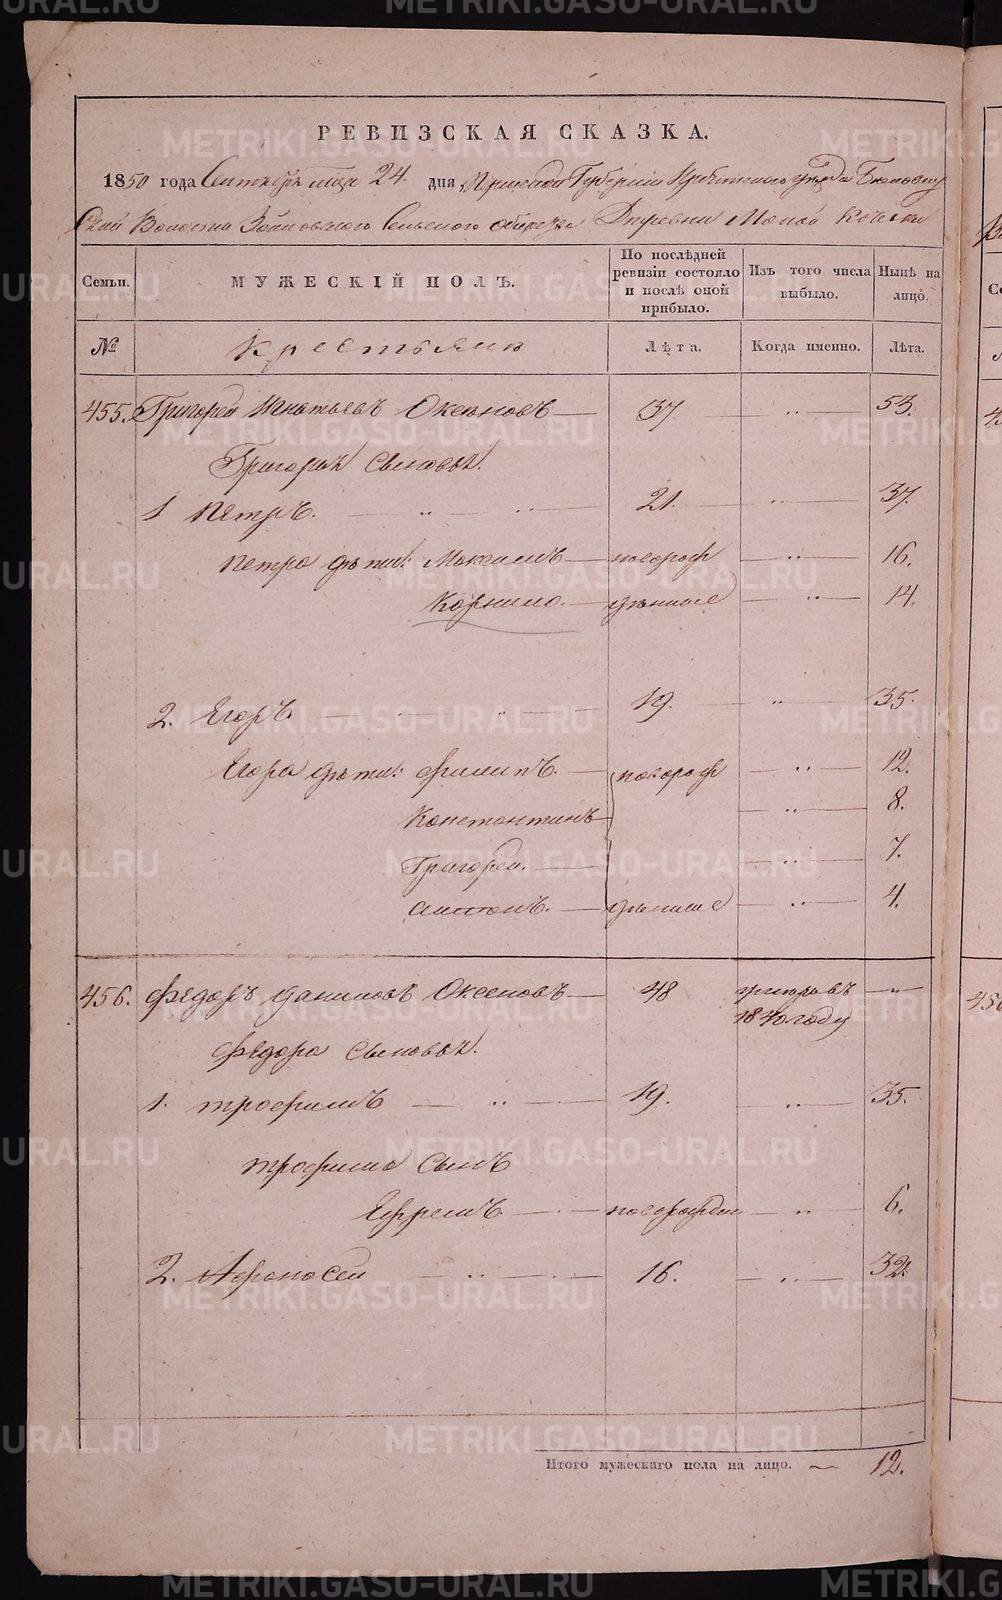 РЕВИЗСКАЯ СКАЗКА.
1850 года Сентября м-ца 24. дня Пермской Губернiи Ирбитскаго уѣзда
ской Волости Сельскаго общества Деревни Малой Кочевки
Семьи. МУЖЕСКIЙ ПОЛЪ. По послѣдней ревизiи состояло и послѣ оной прибыло. Изъ того числа выбыло. Нынѣ на лицо.
№ Крестьяне Лѣта. Когда именно. Лѣта.
455. Григорей Игнатьевъ Оксеновъ — 37. „ — 53.
Григорья Сыновья.
1 Петръ. — „ — 21. „ — 37.
Петра дѣти: Максимъ — новорож „ — 16.
Корнило. — денные „ — 14.
2. Егоръ — „ — 19. „ — 35.
Егора дѣти: Филипъ. — новорож „ — 12.
Константинъ — „ — 8.
Григорей. — „ — 7.
Антонъ. — денные „ — 4.
456. Федоръ Даниловъ Оксеновъ — 48 умеръ въ 1840 году — „ —
Федора Сыновья.
1. Трофимъ — „ — 19. „ — 35.
Трофима Сынъ
Ефремъ — новорожден „ — 6.
2. Афонасей — „ — 16. „ — 32.
Итого мужескаго пола на лицо. — 12.
METRIKI.GASO-URAL.RU